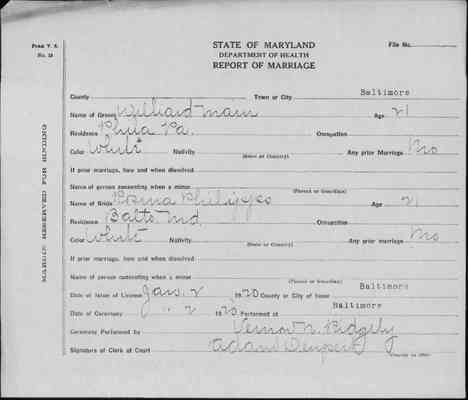 Form V. S.
No. 18
MARGIN RESERVED FOR BINDING
STATE OF MARYLAND
DEPARTMENT OF HEALTH
REPORT OF MARRIAGE
File No.
County Town or City Baltimore
Name of Groom Williard Mann Age 21
Residence Phila Pa. Occupation
Color White Nativity (State or Country) Any prior Marriage No
If prior marriage, how and when dissolved
Name of person consenting when a minor (Parent or Guardian)
Name of Bride Phillipps Age 21
Residence Balto Md. Occupation
Color White Nativity (State or Country) Any prior marriage No
If prior marriage, how and when dissolved
Name of person consenting when a minor (Parent or Guardian)
Date of Issue of License Jan. 2 1920 County or City of Issue Baltimore
Date of Ceremony " 2 1920 Performed at Baltimore
Ceremony Performed by Vernon N. Ridgely
Signature of Clerk of Court Adam